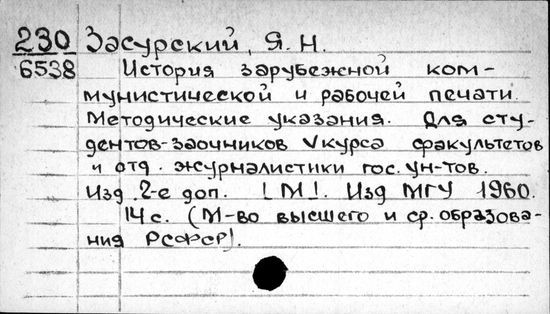 230 Засурский, Я. Н.
6538 История зарубежной ком-
мунистической и рабочей печати.
Методические указания. Для сту-
дентов-заочников V курса факультетов
и отд. журналистики гос. ун-тов.
Изд. 2-е доп. [М]. Изд МГУ 1960.
14 с. (М-во высшего и ср. образова-
ния РСФСР).